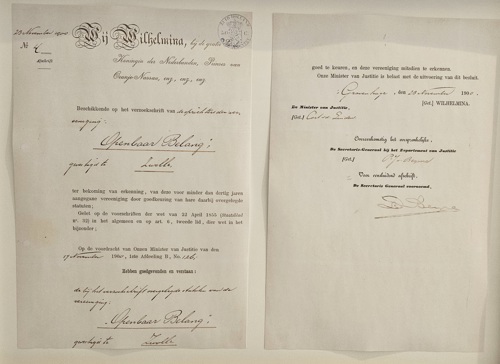 23 November 1900
No 4
Wij Wilhelmina, bij de gratie Gods,
Koningin der Nederlanden, Prinses van
Oranje-Nassau, enz, enz, enz
Beschikkende op het verzoekschrift van
vereeniging:
„Openbaar Belang”,
gevestigd te Zwolle
ter bekoming van erkenning, van deze voor minder dan dertig jaren
aangegane vereeniging door goedkeuring van hare daarbij overgelegde
statuten;
Gelet op de voorschriften der wet van 22 April 1855 (Staatsblad
n°. 32) in het algemeen en op art. 6, tweede lid, dier wet in het
bijzonder;
Op de voordracht van Onzen Minister van Justitie van den
November 1900, 1ste Afdeeling B, No.
Hebben goedgevonden en verstaan:
de bij het verzoekschrift overgelegde statuten van de
vereeniging:
„Openbaar Belang”,
gevestigd te Zwolle
goed te keuren, en deze vereeniging mitsdien te erkennen.
Onze Minister van Justitie is belast met de uitvoering van dit besluit.
den 23 November 1900.
(Get.) WILHELMINA.
De Minister van Justitie,
(Get.) Cort v.d. Linden
Overeenkomstig het oorspronkelijke,
De Secretaris-Generaal bij het Departement van Justitie
(Get.)
Voor eensluidend afschrift,
De Secretaris Generaal voornoemd,